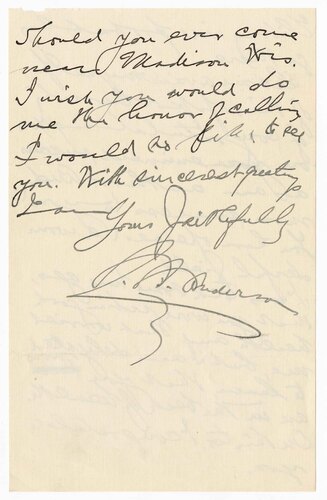 Should you ever come
near Madison Wis.
I wish you would do
me the honor of calling
I would so like to see
you. With sincerest greetings
I am Yours Faithfully
Anderson